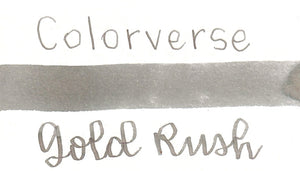 Colorverse
Gold Rush